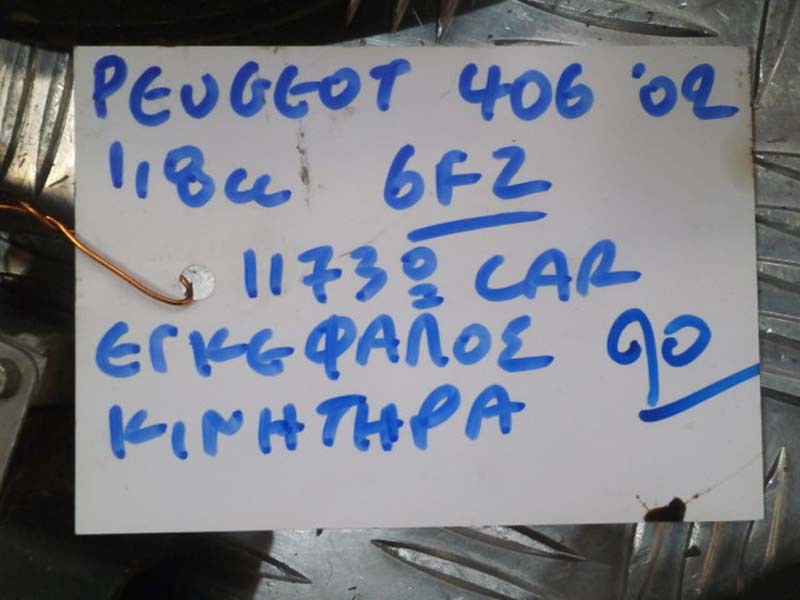 PEUGEOT 406 '02
1,8cc 6FZ
1173º CAR
ΕΓΚΕΦΑΛΟΣ 90
ΚΙΝΗΤΗΡΑ